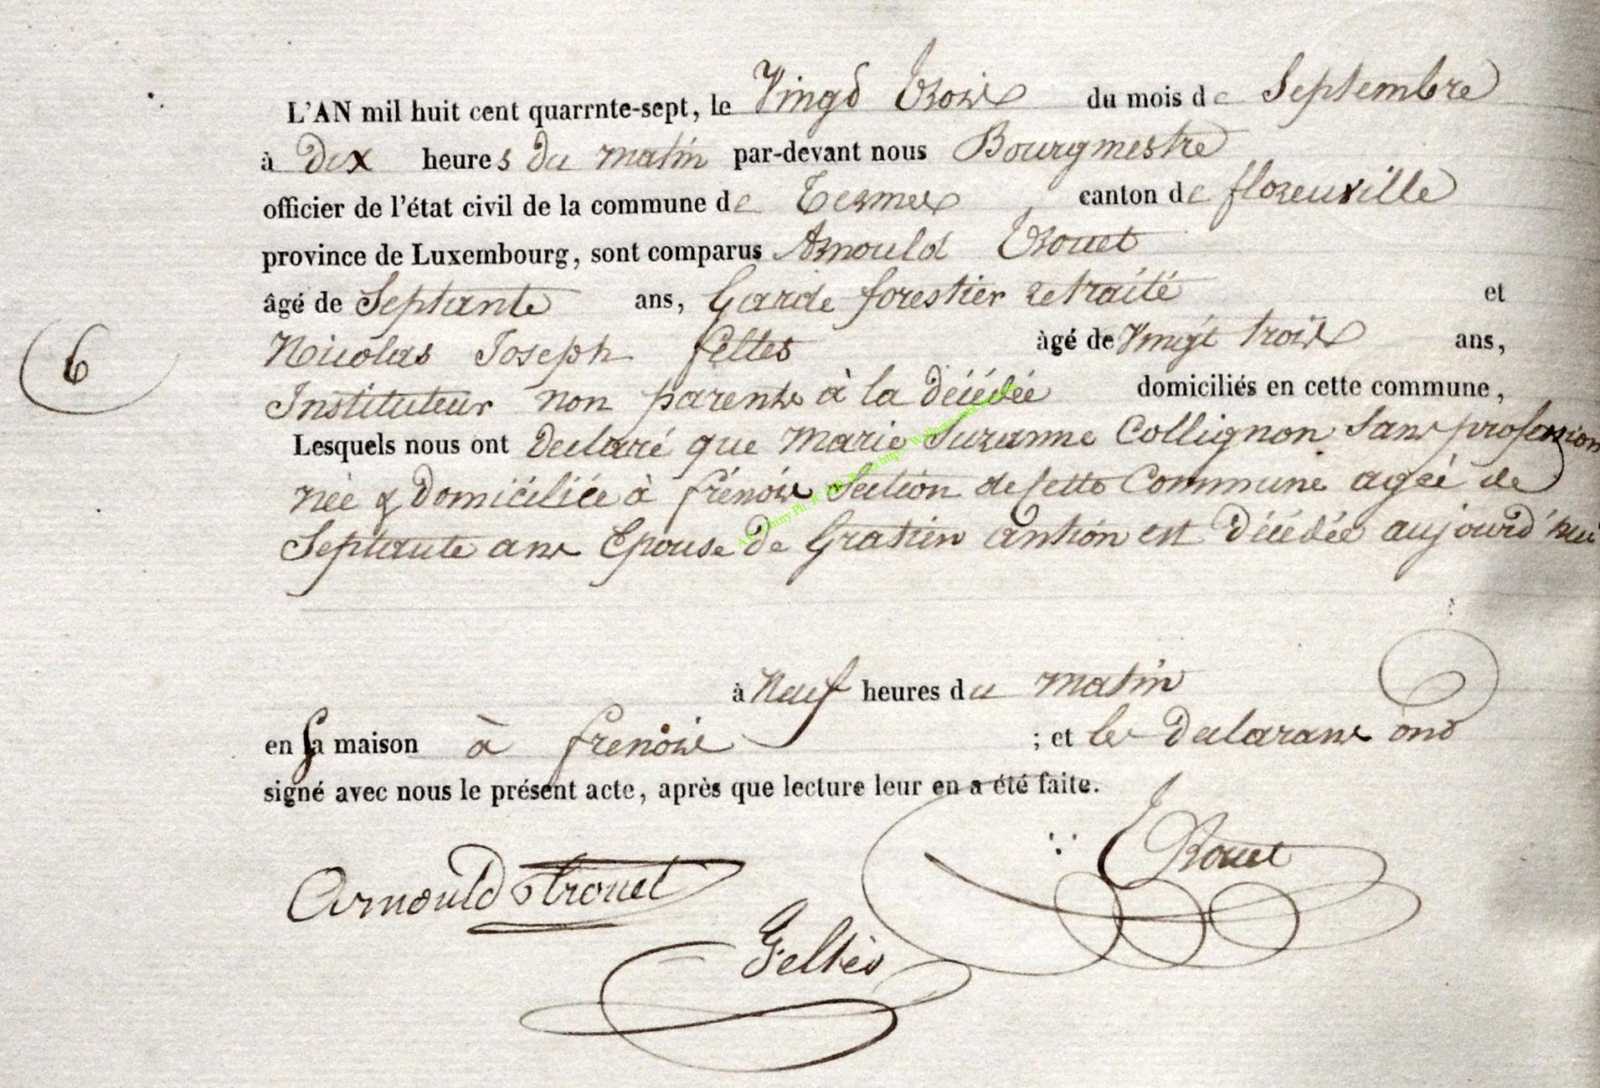 L'AN mil huit cent quarrnte-sept, le Vingd Trois du mois de Septembre
à dix heures du matin par-devant nous Bourgmestre
officier de l'état civil de la commune de Termes canton de florenville
province de Luxembourg, sont comparus Arnould Trouet
âgé de Septante ans, Garde forestier retraité et
6
Nicolas Joseph feltes àgé de Vingt trois ans,
Instituteur non parents à la décédée domiciliés en cette commune,
Lesquels nous ont declaré que marie Suzanne Collignon Sans profession
née & domiciliée à frénois Section de cette Commune agée de
Septante ans Epouse de Gratien anthon est décédée aujourd'hui
à Neuf heures du matin
en sa maison à frenois ; et les declarans ond
signé avec nous le présent acte, après que lecture leur en a été faite.
Arnould trouet
Trouet
Feltès